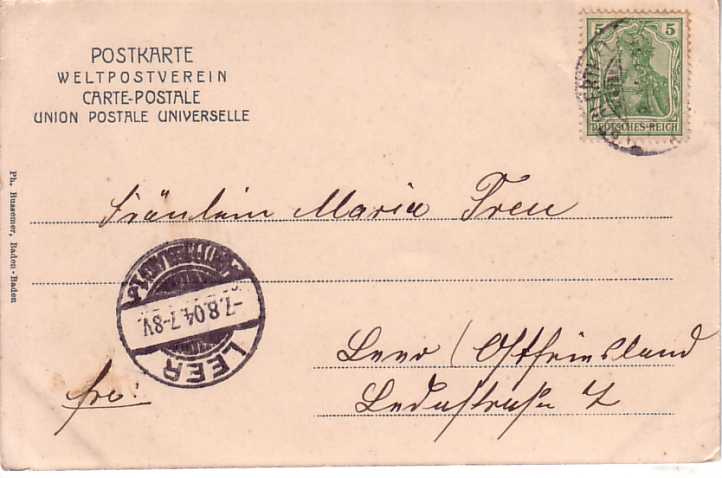 POSTKARTE
WELTPOSTVEREIN
CARTE-POSTALE
UNION POSTALE UNIVERSELLE
5 5
DEUTSCHES-REICH
Ph. Bussemer, Baden-Baden
Fräulein Maria Treu
-7.8.04.7-8V.
LEER
Leer (Ostfriesland
frei!
Ledastraße 7